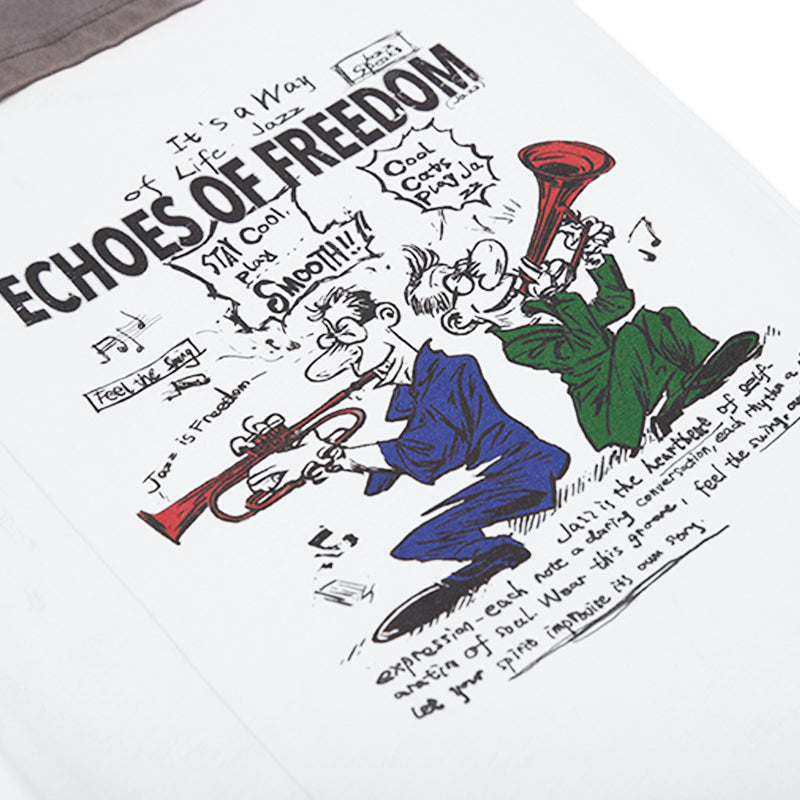 It's a Way
of Life Jazz
Jazz
Speaks
ECHOES OF FREEDOM
(Jazz)
Cool
Cats
Play Ja
zz
STAY Cool,
Play
SMOOTH!!!
Feel the Swing
Jazz is Freedom
Jazz is the heartbeat of self
expression-each note a daring conversation, each rhythm a
of soul. Wear this groove, feel the swing,
let your spirit improvise its own story.